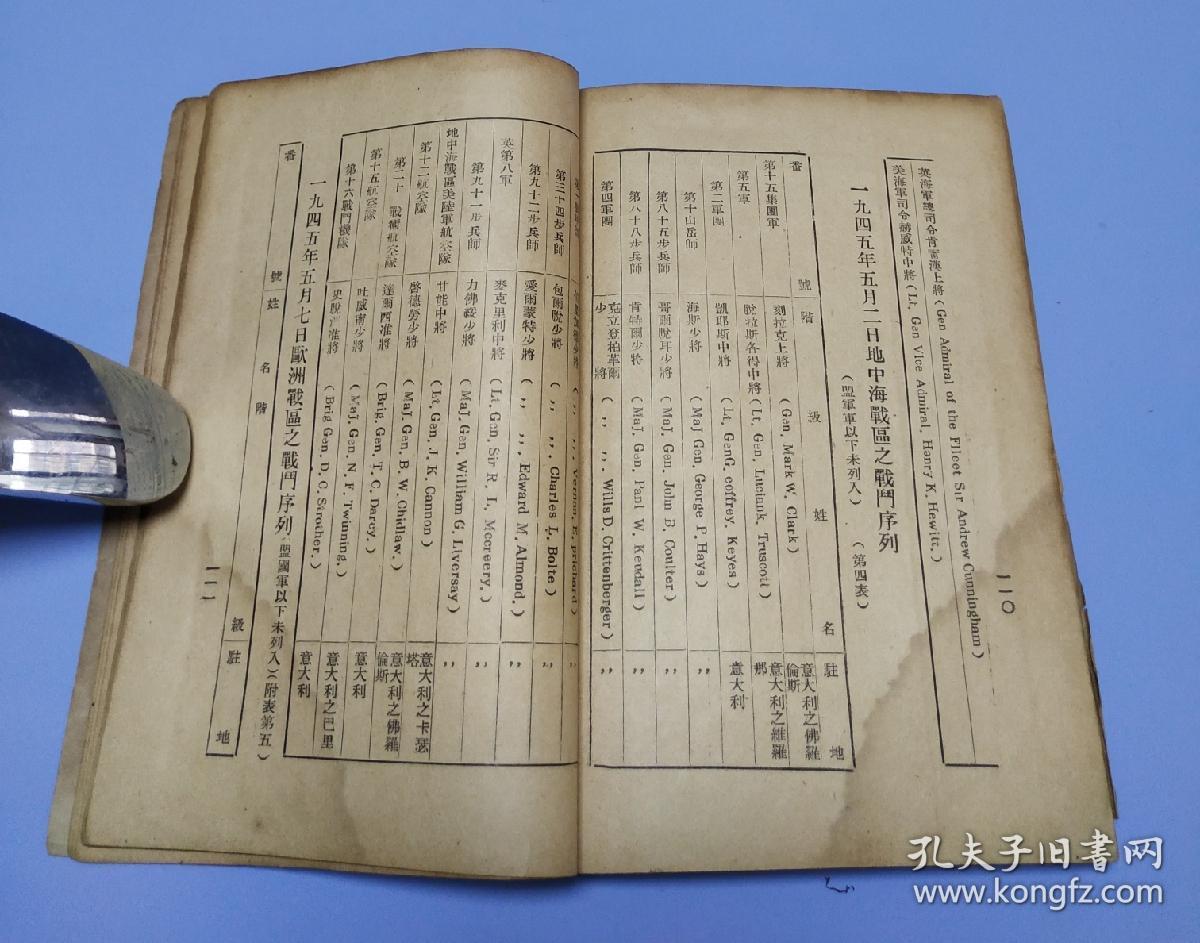 一一〇
英海軍總司令肯甯漢上將(Gen Admiral of the Flleet Sir Andrew Cunningham)
美海軍司令赫威特中將(Lt, Gen Vice Admiral, Henry K. Hewitt,)
一九四五年五月二日地中海戰區之戰鬥序列
(盟軍軍以下未列入) (第四表)
番 號 階 級 姓 名 駐 地
第十五集團軍 刻拉克上將 (Gen, Mark W, Clark) 意大利之佛羅倫斯
第五軍 脫拉斯各得中將(Lt, Gen, Luciank, Truscott) 意大利之維羅那
第二軍團 凱耶斯中將 (Lt, GenG. eoffrey, Keyes) 意大利
第十山岳師 海斯少將 (MaJ Gen, George P. Hays) ,,
第八十五步兵師 哥爾脫耳少將 (MaJ. Gen. John B, Coulter) ,,
第八十八步兵師 肯特爾少將 (MaJ. Gen. Paul W. Kendall) ,,
第四軍團 克立登拍革爾少將 ( ,, ,,. Wills D. Crittenberger) ,,
( ,, ,,. Vernon, E, prichard) ,,
第三十四步兵師 包爾脫少將 ( ,, ,,. Charles L. Bolte) ,,
第九十二步兵師 愛爾蒙特少將 ( ,, ,,. Edward M. Almond.) ,,
英第八軍 麥克里利中將 (Lt. Gen. Sir R. L, Mccreery,) ,,
第九十一步兵師 力佛綏少將 (MaJ. Gen, William G. Liversay) ,,
地中海戰區美陸軍航空隊 甘能中將 (Lt, Gen, J. K. Cannon) 意大利之卡瑟塔
第十二航空隊 啓德勞少將 (MaJ. Gen, B. W. Chidlaw.) 意大利之佛羅倫斯
第二十二戰術航空隊 達爾西准將 (Brig. Gen, T. C, Darcy,) 意大利
第十五航空隊 吐威甯少將 (MaJ, Gen, N. F. Twinning.) 意大利之巴里
第十六戰鬥機隊 史脫洛准將 (Brig Gen, D, C. Strother.) 意大利
一九四五年五月七日歐洲戰區之戰鬥序列(盟國軍以下未列入)(附表第五)
番 號 姓 名 階 級 駐 地
一一一
孔夫子旧书网
www.kongfz.com